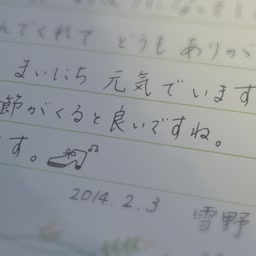 んでくれて どうも ありが
まいにち 元気でいます
節がくると良いですね。
す。
2014.2.3
雪野